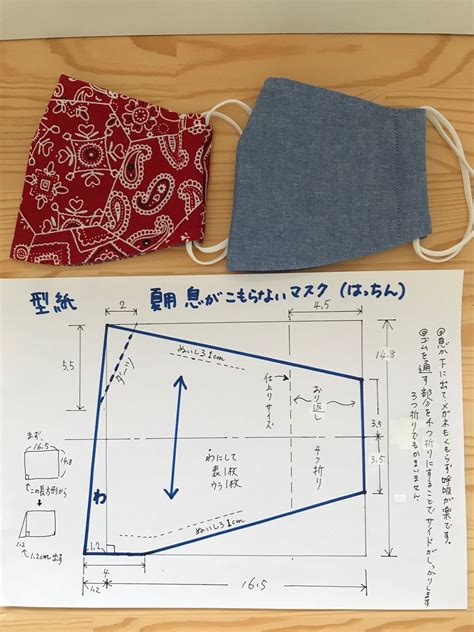 型紙
夏用 息がこもらないマスク(はっちん)
2
4.5
5.5
ダーツ
ぬいしろ1cm
仕上りサイズ
おり返し
4つ折り
14.8
3.5
3.5
わ
わにして
表1枚
ウラ1枚
ぬいしろ1cm
1.2
4
1.2
16.5
まず
16.5
14.8
この長方形から
1.2
1.2cm出す
◎息が下に出て、メガネもくもらず呼吸が楽です。
◎ゴムを通す部分を4つ折りにすることでサイドがしっかりします
3つ折りでもかまいません。